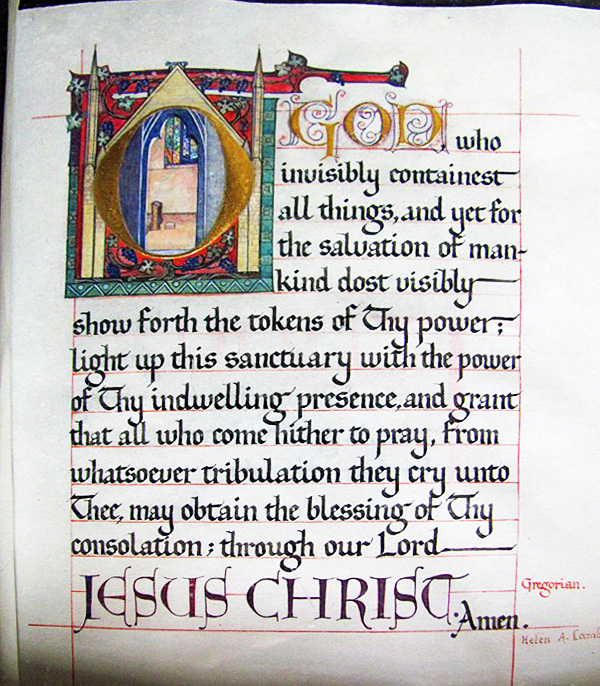 O GOD, who
invisibly containest
all things, and yet for
the salvation of man-
kind dost visibly
show forth the tokens of Thy power;
light up this sanctuary with the power
of Thy indwelling presence, and grant
that all who come hither to pray, from
whatsoever tribulation they cry unto
Thee, may obtain the blessing of Thy
consolation; through our Lord
JESUS CHRIST
Gregorian.
Amen.
Helen A.